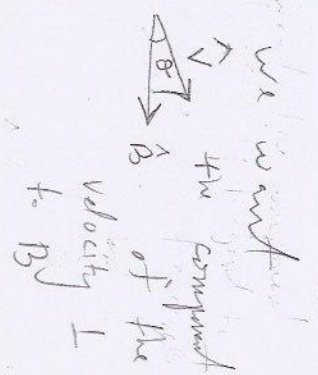 We want
the component
of the
velocity ⊥
to B
V
θ
B̂